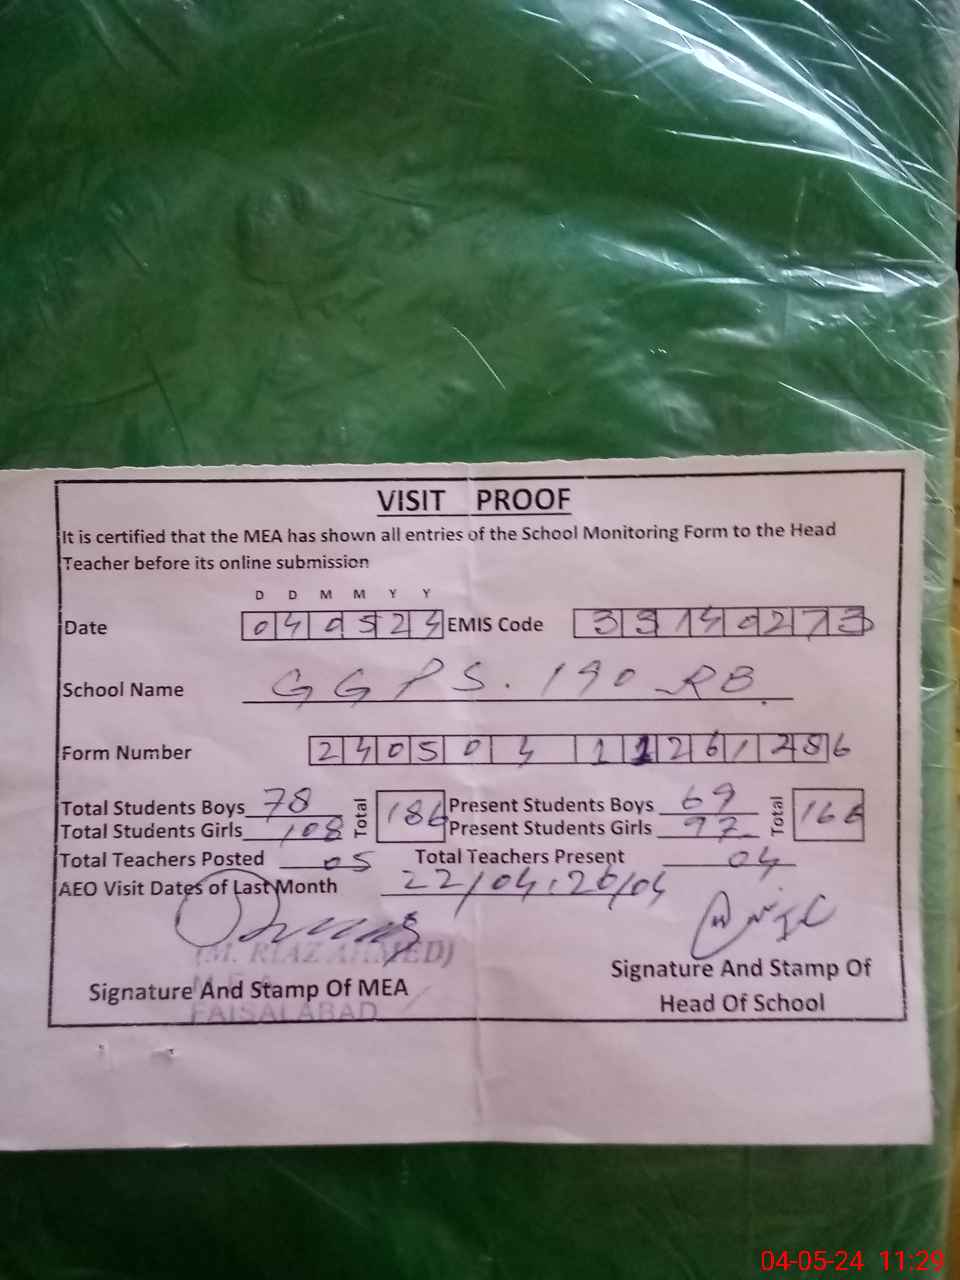 VISIT PROOF
It is certified that the MEA has shown all entries of the School Monitoring Form to the Head
Teacher before its online submission
D D M M Y Y
Date 040524 EMIS Code 33140273
School Name GGPS. 190 RB
Form Number
Total Students Boys 78 Total 186 Present Students Boys 69 Total 166
Total Students Girls 108 Present Students Girls 97
Total Teachers Posted 05 Total Teachers Present 04
AEO Visit Dates of Last Month 22/04, 26/04
(M. RIAZ AHMED)
Signature And Stamp Of MEA
M E A
FAISALABAD
Signature And Stamp Of
Head Of School
04-05-24 11:29